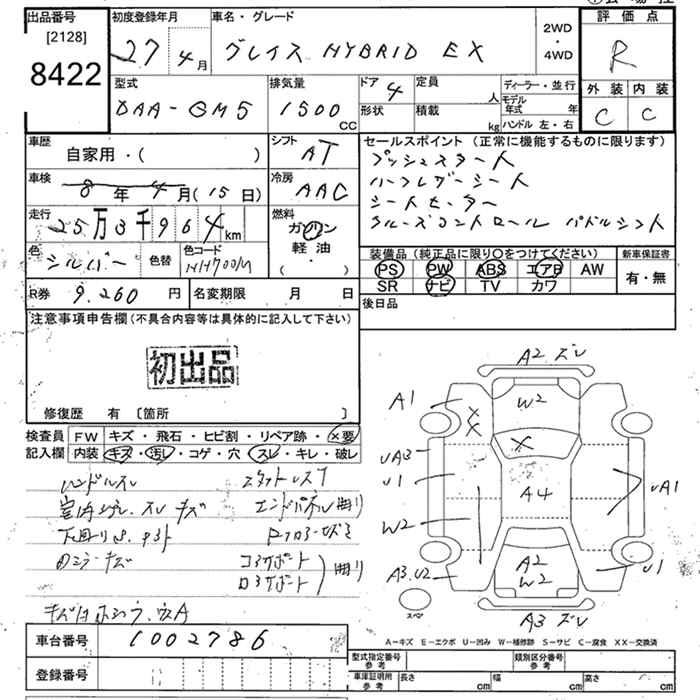 出品番号 [2128] 8422
初度登録年月 27 4月
車名・グレード グレイス HYBRID EX
2WD・4WD
評価点 R
外装 C 内装 C
型式 DAA-GM5
排気量 1500 CC
ドア 4
形状
定員 人
積載 kg
ディーラー・並行
モデル年式 年
ハンドル 左・右
車歴 自家用・( )
シフト AT
車検 8年 4月(15日)
冷房 AAC
走行 25万3千964km
燃料 ガソリン 軽油・( )
色 シルバー
色替
色コード NH700M
R券 9.260円
名変期限 月 日
セールスポイント(正常に機能するものに限ります)
プッシュスタート
ハーフレザーシート
シートヒーター
クルーズコントロール パドルシフト
装備品(純正品に限り○をつけてください) 新車保証書
PS PW ABS エアB AW 有・無
SR ナビ TV カワ
後日品
注意事項申告欄(不具合内容等は具体的に記入して下さい)
初出品
修復歴 有〔箇所 〕
検査員記入欄
FW キズ・飛石・ヒビ割・リペア跡・×要
内装 キズ・汚レ・コゲ・穴 スレ・キレ・破レ
ハンドルスレ
エンドパネル曲り
下回りS.
コアサポート
ロアサポート 曲り
A2 ズレ
A1
W2
X
X
X
UA3
U1
W2
A4
UA1
A3.U2
A2
W2
U1
スペア
A3 ズレ
A−キズ E−エクボ U−凹み W−補修跡 S−サビ C−腐食 XX−交換済
車台番号 1002786
登録番号
型式指定番号 参考
類別区分番号 参考
車庫証明所 参考 長さ cm 幅 cm 高さ cm